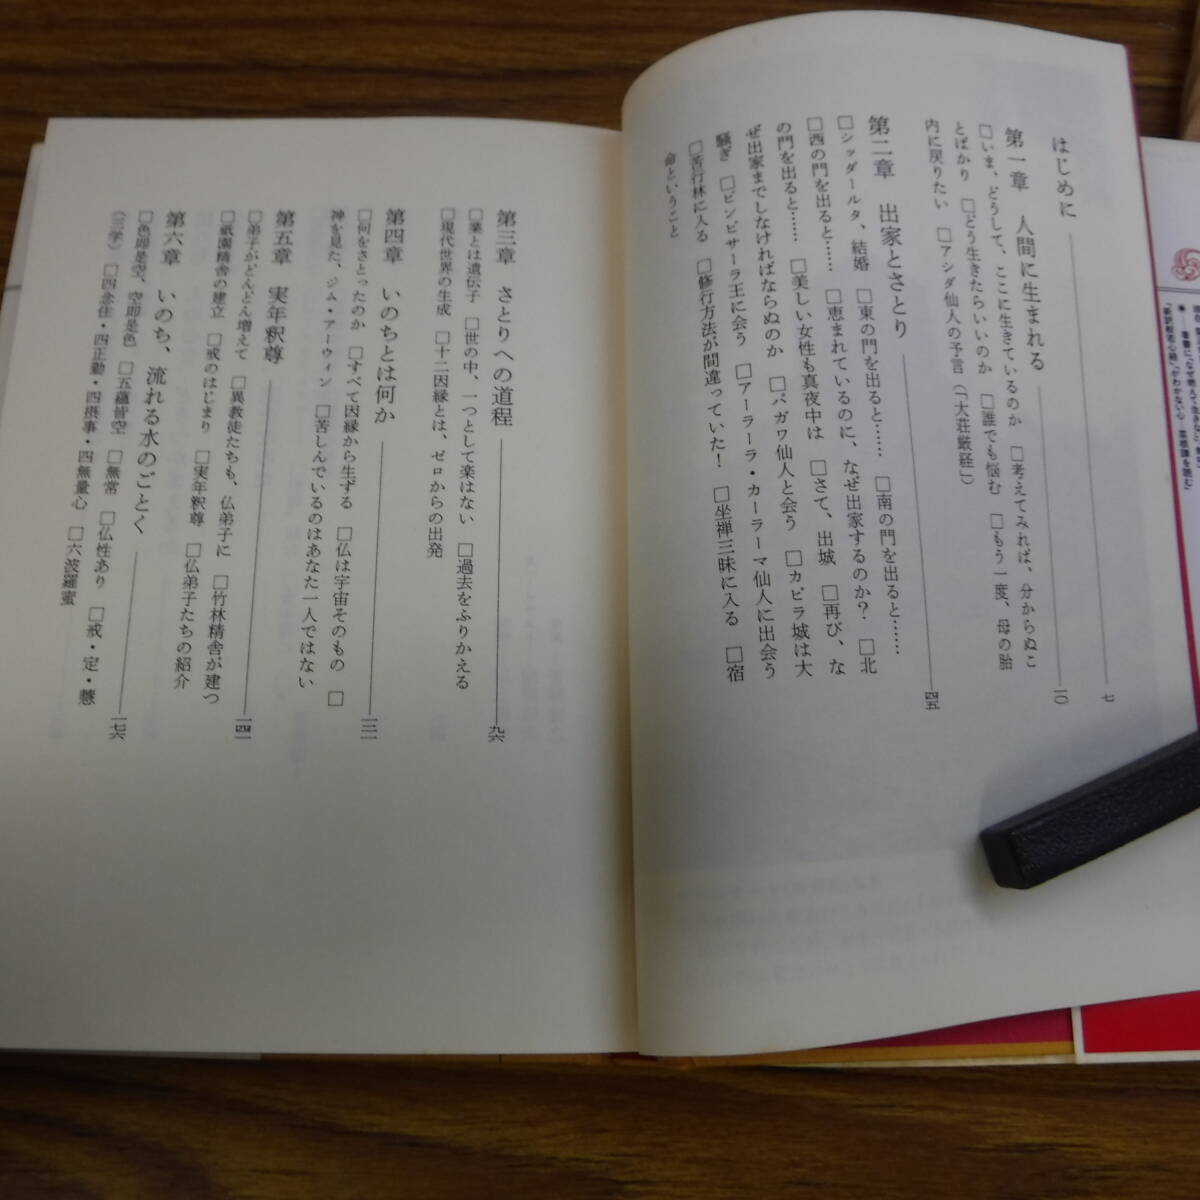 はじめに 七
第一章　人間に生まれる 一〇
□いま、どうして、ここに生きているのか　□考えてみれば、分からぬこ
とばかり　□どう生きたらいいのか　□誰でも悩む　□もう一度、母の胎
内に戻りたい　□アシダ仙人の予言（「大荘厳経」）
第二章　出家とさとり 四五
□シッダールタ、結婚　□東の門を出ると……　□南の門を出ると……
□西の門を出ると……　□恵まれているのに、なぜ出家するのか？　□北
の門を出ると……　□美しい女性も真夜中は　□さて、出城　□再び、な
ぜ出家までしなければならぬのか　□バガワ仙人と会う　□カピラ城は大
騒ぎ　□ビンビサーラ王に会う　□アーラーラ・カーラーマ仙人に出会う
□苦行林に入る　□修行方法が間違っていた！　□坐禅三昧に入る　□宿
命ということ
第三章　さとりへの道程 九六
□業とは遺伝子　□世の中、一つとして楽はない　□過去をふりかえる
□現代世界の生成　□十二因縁とは、ゼロからの出発
第四章　いのちとは何か 一三一
□何をさとったのか　□すべて因縁から生ずる　□仏は宇宙そのもの　□
神を見た、ジム・アーウィン　□苦しんでいるのはあなた一人ではない
第五章　実年釈尊 一四一
□弟子がどんどん増えて　□異教徒たちも、仏弟子に　□竹林精舎が建つ
□祇園精舎の建立　□戒のはじまり　□実年釈尊　□仏弟子たちの紹介
第六章　いのち、流れる水のごとく 一七六
□色即是空、空即是色　□五蘊皆空　□無常　□仏性あり　□戒・定・慧
（三学）　□四念住・四正勤・四摂事・四無量心　□六波羅蜜